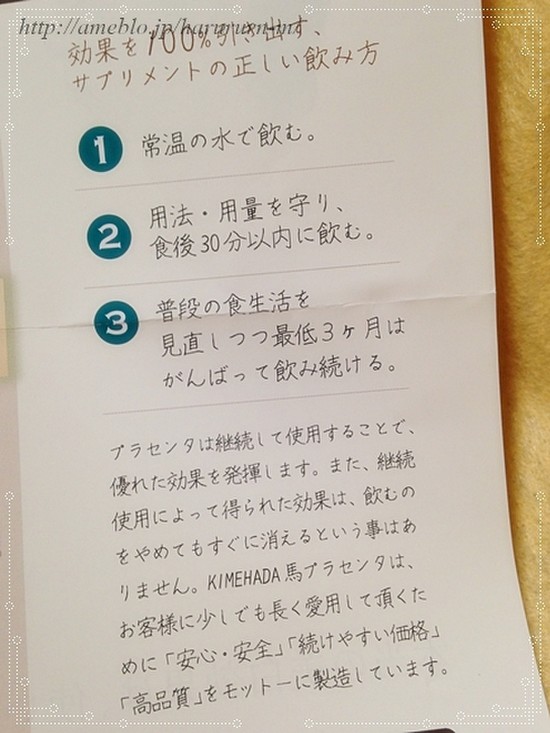 http://ameblo.jp/harurun-mi
効果を100%引き出す、
サプリメントの正しい飲み方
1 常温の水で飲む。
2 用法・用量を守り、
食後30分以内に飲む。
3 普段の食生活を
見直しつつ最低3ヶ月は
がんばって飲み続ける。
プラセンタは継続して使用することで、
優れた効果を発揮します。また、継続
使用によって得られた効果は、飲むの
をやめてもすぐに消えるという事はあ
りません。KIMEHADA馬プラセンタは、
お客様に少しでも長く愛用して頂くた
めに「安心・安全」「続けやすい価格」
「高品質」をモットーに製造しています。